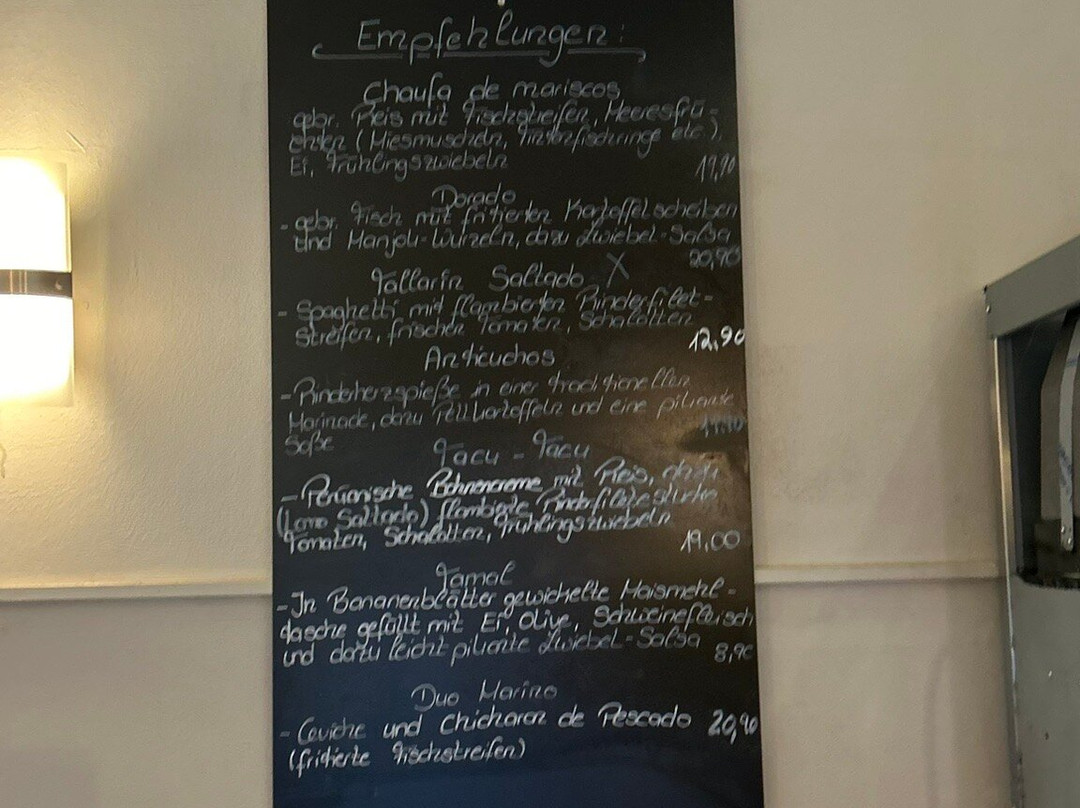 Empfehlungen:
Chaufa de mariscos
gebr. Reis mit Fischstreifen, Meeresfrü-
chten (Miesmuscheln, Tintenfischringe etc.),
Ei, Frühlingszwiebeln
19,90
Dorado
- gebr. Fisch mit fritierten Kartoffelscheiben
und Manjok-Wurzeln, dazu Zwiebel-Salsa
20,90
Tallarin Saltado X
- Spaghetti mit flambierten Rinderfilet-
Streifen, frischen Tomaten, Schalotten
12,90
Anticuchos
- Rinderherzspieße in einer traditionellen
Marinade, dazu Pellkartoffeln und eine pikante
Soße
Tacu - Tacu
- Peruanische Bohnencreme mit Reis, dazu
(Lomo Saltado) flambierte
Tomaten, Schalotten, Frühlingszwiebeln
19,00
Tamal
- In Bananenblätter gewickelte Maismehl-
tasche gefüllt mit Ei, Olive, Schweinefleisch
und dazu leicht pikante Zwiebel-Salsa
8,90
Duo Marino
- Ceviche und Chicharon de Pescado 20,90
(fritierte Fischstreifen)